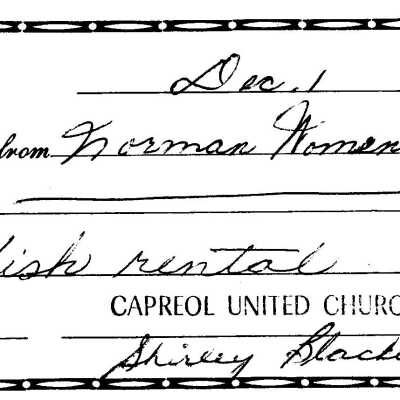 Dec. 1
from Norman Women
dish rental
CAPREOL UNITED CHURC
Shirley Black